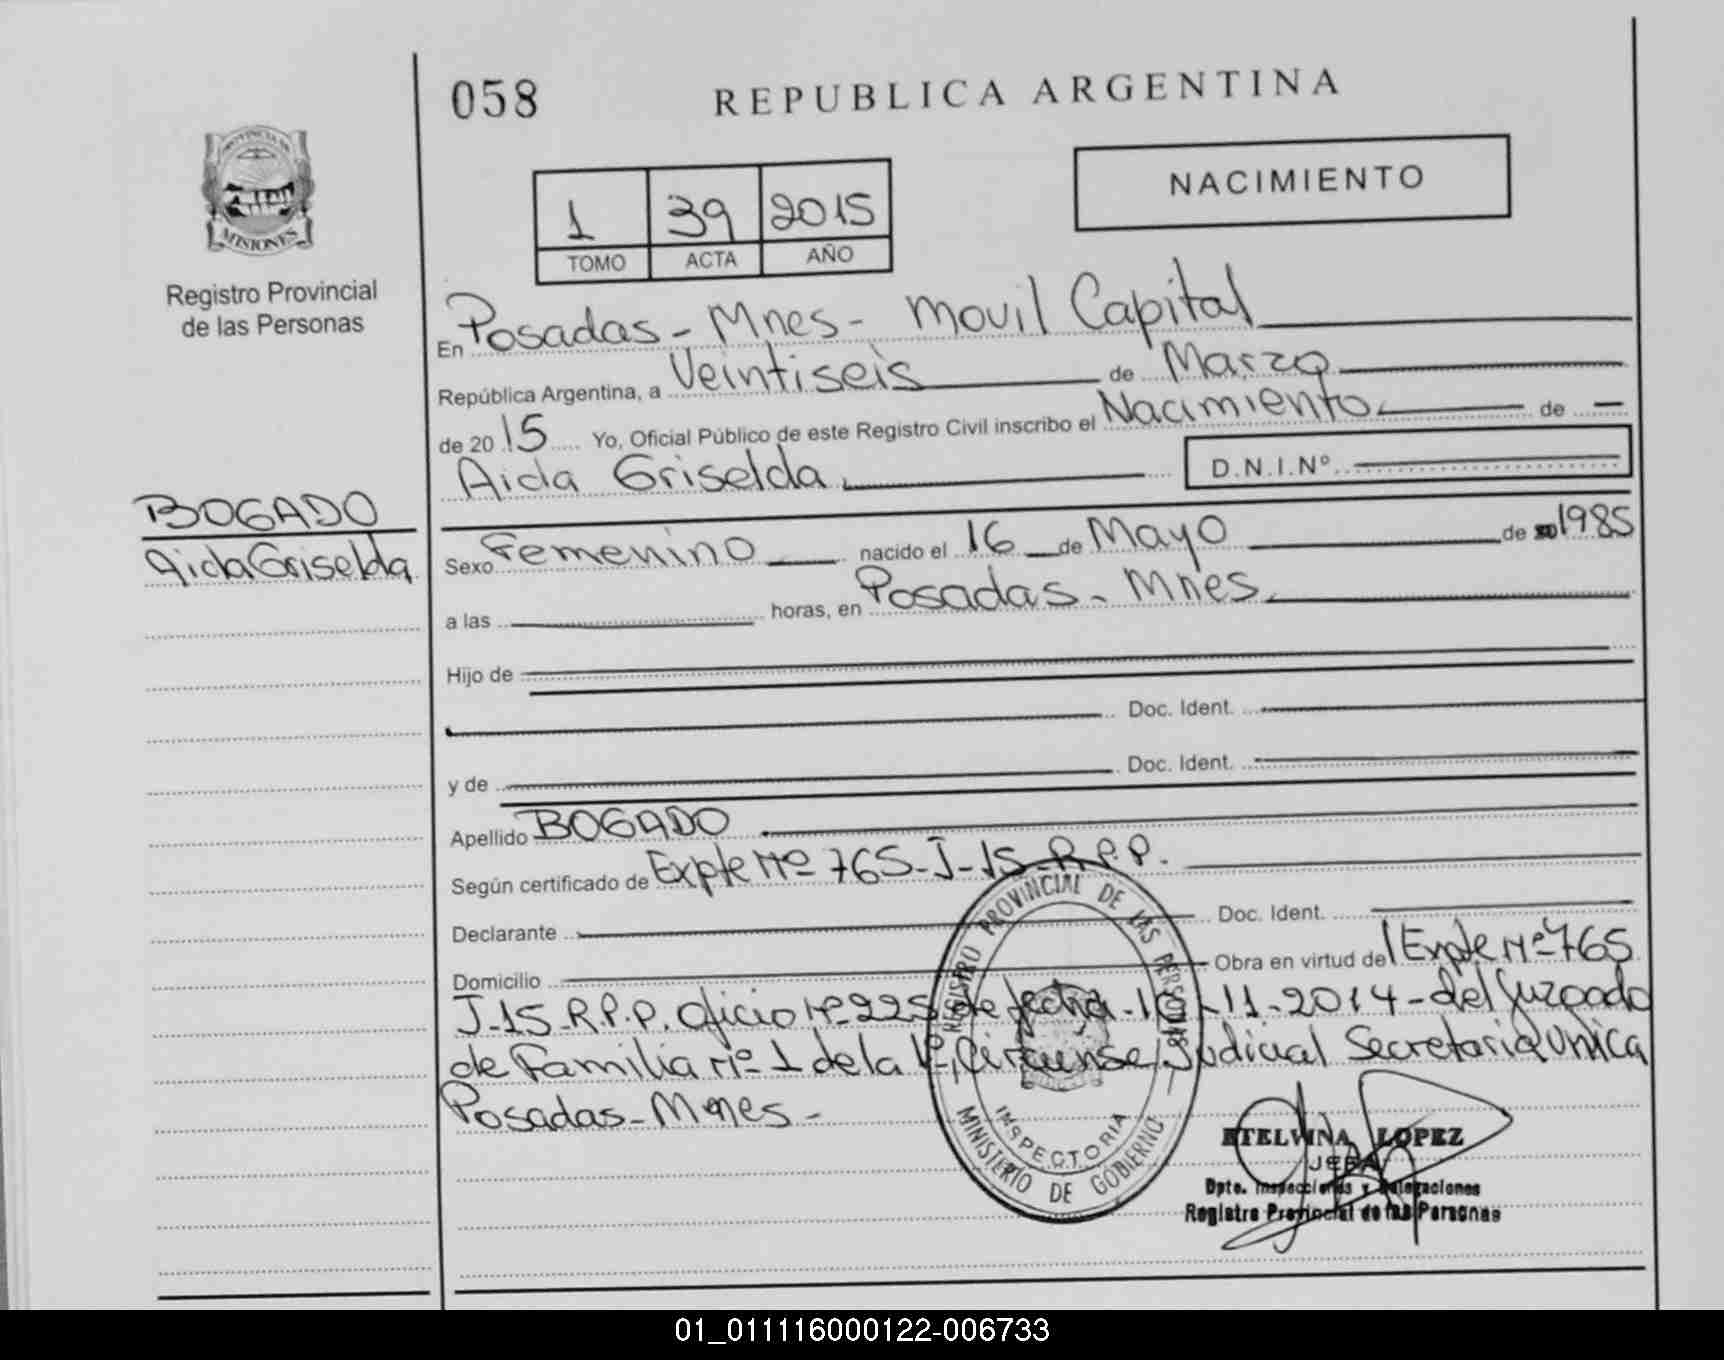 058
REPUBLICA ARGENTINA
PROVINCIA DE
MISIONES
Registro Provincial
de las Personas
1 39 2015
TOMO ACTA AÑO
NACIMIENTO
En Posadas - Mnes - Movil Capital
República Argentina, a Veintiseis de Marzo
de 2015 Yo, Oficial Público de este Registro Civil inscribo el Nacimiento de
Aida Griselda D.N.I.Nº
BOGADO
Aida Griselda
Sexo Femenino nacido el 16 de Mayo de 1985
a las horas, en Posadas - Mnes.
Hijo de
Doc. Ident.
y de Doc. Ident.
Apellido BOGADO
Según certificado de Expte Nº 765-J-15-R.P.P.
Declarante Doc. Ident.
Domicilio Obra en virtud del Expte Nº 765
J-15-R.P.P. Oficio Nº 225 de fecha -11-2014 - del Juzgado
de Familia Nº 1 de la 1º Judicial Secretaria Unica
Posadas - Mnes -
REGISTRO PROVINCIAL DE LAS PERSONAS
INSPECTORIA
MINISTERIO DE GOBIERNO
ETELVINA LOPEZ
JEFA
Dpto. Inspecciones y Delegaciones
Registro Provincial de las Personas
01_011116000122-006733